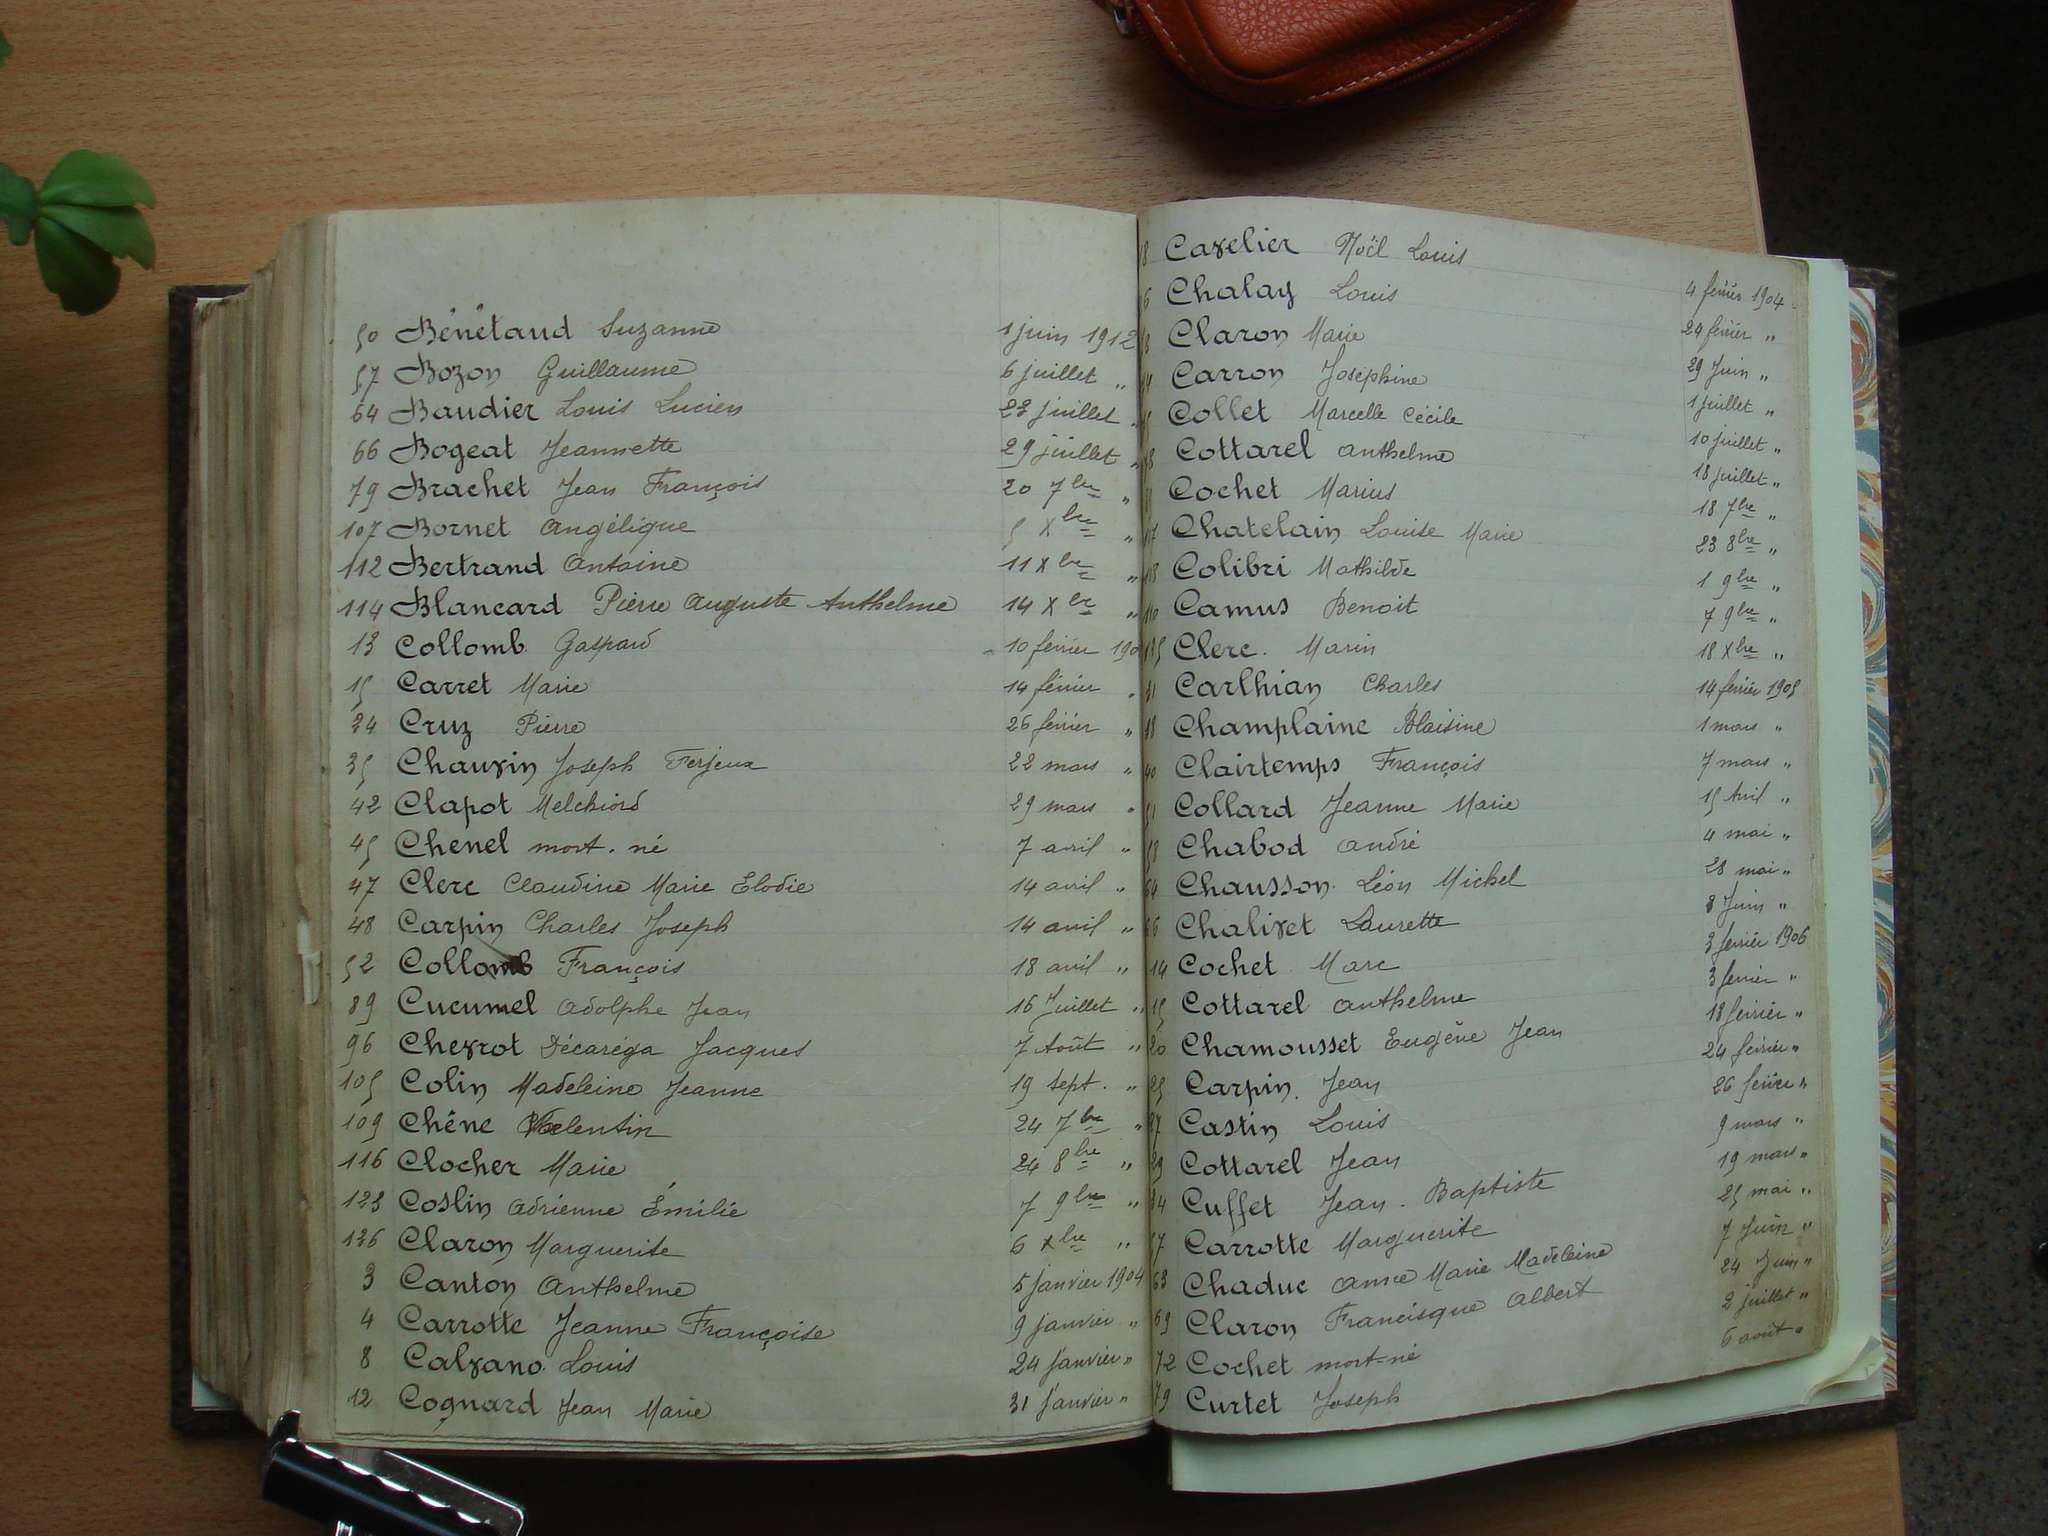 50 Bénétaud Suzanne 1 juin 1912
57 Bozon Guillaume 6 juillet "
64 Baudier Louis Lucien 23 juillet "
66 Bogeat Jeannette 29 juillet "
79 Brachet Jean François 20 7bre "
107 Bornet Angélique 5 Xbre "
112 Bertrand Antoine 11 Xbre "
114 Blancard Pierre Auguste Anthelme 14 Xbre "
13 Collomb Gaspard 10 février 190
15 Carret Marie 14 février "
24 Cruz Pierre 26 février "
35 Chauvin Joseph Ferjeux 22 mars "
42 Clapot Melchiord 29 mars "
45 Chenel mort-né 7 avril "
47 Clerc Claudine Marie Elodie 14 avril "
48 Carpin Charles Joseph 14 avril "
52 Collomb François 18 avril "
89 Cucumel Adolphe Jean 16 Juillet "
96 Chevrot Décaréga Jacques 7 Août "
105 Colin Madeleine Jeanne 19 sept. "
109 Chêne Valentin 24 7bre "
116 Clocher Marie 24 8bre "
123 Coslin Adrienne Émilie 7 9bre "
136 Claron Marguerite 6 Xbre "
3 Canton Anthelme 5 janvier 1904
4 Carrotte Jeanne Françoise 9 janvier "
8 Calvano Louis 24 janvier "
12 Cognard Jean Marie 31 janvier "
18 Cavelier Noël Louis 4 février 1904
6 Chalay Louis 24 février "
Claron Marie 29 Juin "
Carron Joséphine 1 juillet "
Collet Marcelle Cécile 10 juillet "
Cottarel Anthelme 18 juillet "
Cochet Marius 18 7bre "
Chatelain Louise Marie 23 8bre "
Colibri Mathilde 1 9bre "
Camus Benoit 7 9bre "
Clerc Marin 18 Xbre "
Carlhian Charles 14 février 1905
18 Champlaine Blaisine 1 mars "
40 Clairtemps François 7 mars "
51 Collard Jeanne Marie 15 Avril "
58 Chabod André 4 mai "
64 Chausson Léon Michel 28 mai "
66 Chalivet Laurette 8 Juin "
14 Cochet Marc 3 février 1906
15 Cottarel Anthelme 3 février "
20 Chamousset Eugène Jean 18 février "
25 Carpin Jean 24 février "
27 Castin Louis 26 février "
29 Cottarel Jean 9 mars "
34 Cuffet Jean-Baptiste 19 mars "
57 Carrotte Marguerite 25 mai "
63 Chaduc Anne Marie Madeleine 7 Juin "
69 Claron Francisque Albert 24 Juin "
72 Cochet mort-né 2 juillet "
79 Curtet Joseph 6 août "